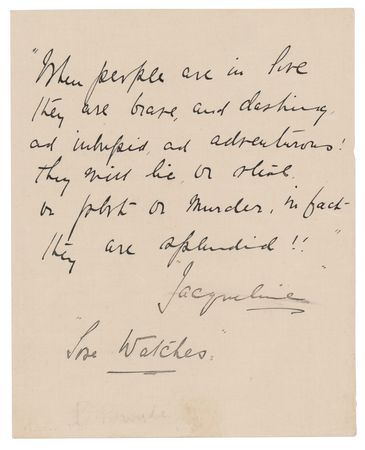 "When people are in love
they are brave, and dashing,
ad intrepid, ad adventurous!
they will lie, or steal
or or murder, in fact
they are splendid!!"
"Jacqueline"
"Love Watches."